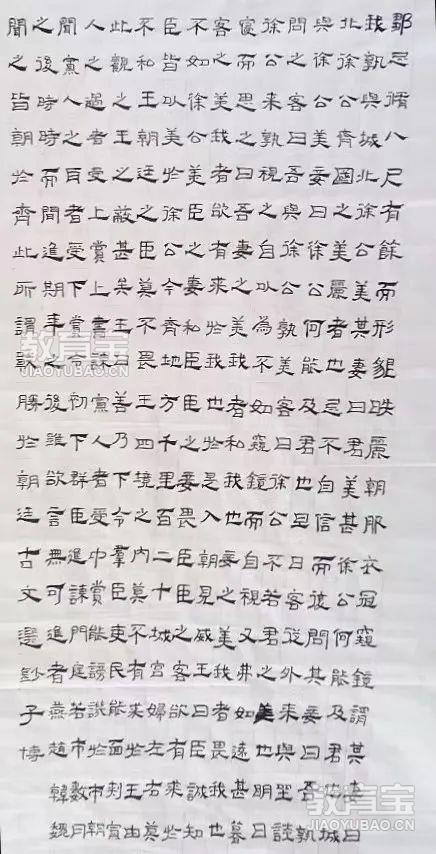 鄒忌脩八尺有餘而形貌昳麗朝服衣冠窺鏡謂其妻曰
我孰與城北徐公美其妻曰君美甚徐公何能及君也城
北徐公齊國之美麗者也忌不自信而復問其妾曰吾孰
與徐公美妾曰徐公何能及君也旦日客從外來與坐談
問之客曰吾與徐公孰美客曰徐公不若君之美也明日
徐公來孰視之自以為不如窺鏡而自視又弗如遠甚暮
寢而思之曰吾妻之美我者私我也妾之美我者畏我也
客之美我者欲有求於我也於是入朝見威王曰臣誠知
不如徐公美臣之妻私臣臣之妾畏臣臣之客欲有求於
臣皆以美於徐公今齊地方千里百二十城宮婦左右莫
不私王朝廷之臣莫不畏王四境之內莫不有求於王由
此觀之王之蔽甚矣王曰善乃下令羣臣吏民能面刺寡
人之過者受上賞上書諫寡人者受中賞能謗譏於市朝
聞寡人之耳者受下賞令初下群臣進諫門庭若市數月
之後時時而間進期年之後雖欲言無可進者燕趙韓魏
聞之皆朝於齊此所謂戰勝於朝廷古文選鈔子博
教育宝
JIAOYUBAO.CN
教育宝
JIAOYUBAO.CN
教育宝
JIAOYUBAO.CN
教育宝
JIAOYUBAO.CN